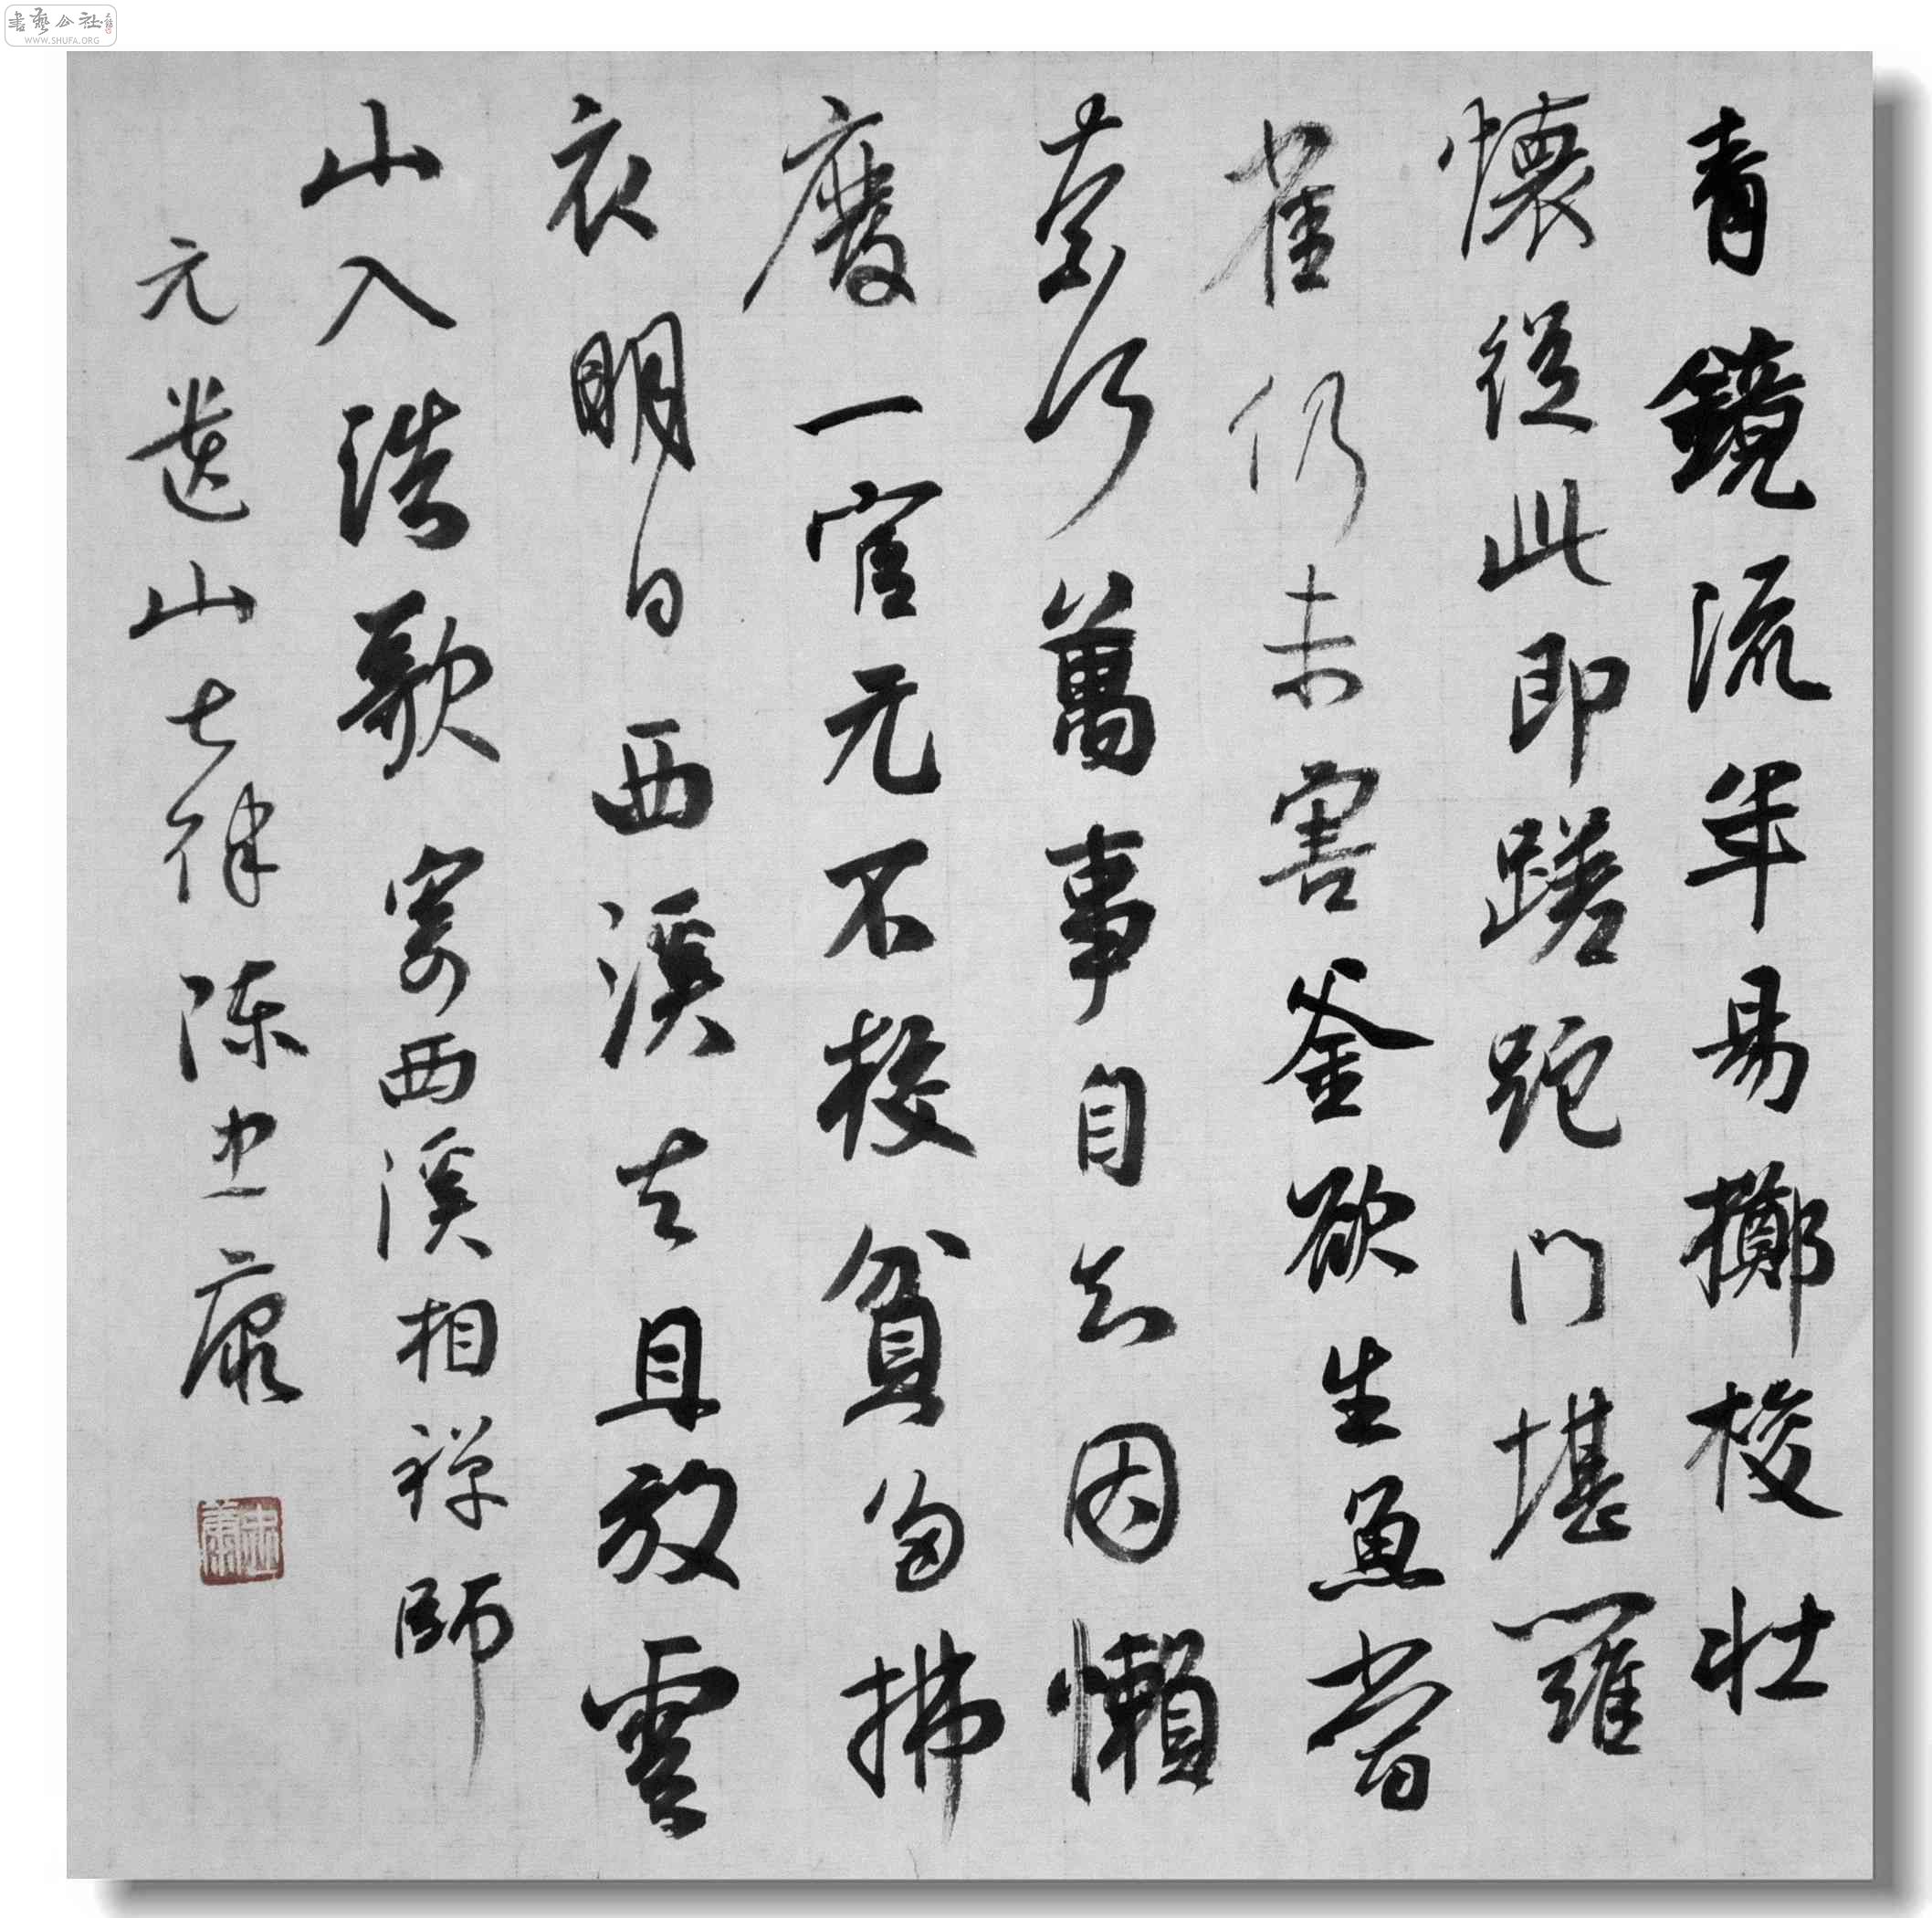 書藝公社
WWW.SHUFA.ORG
青鏡流年易擲梭壯
懷從此即蹉跎門堪羅
雀仍未害釜欲生魚當
奈何萬事自知因懶
廢一官元不校貧多拂
衣明日西溪去且放雲
山入浩歌 寄西溪相禪師
元遺山七律陳忠康
忠康